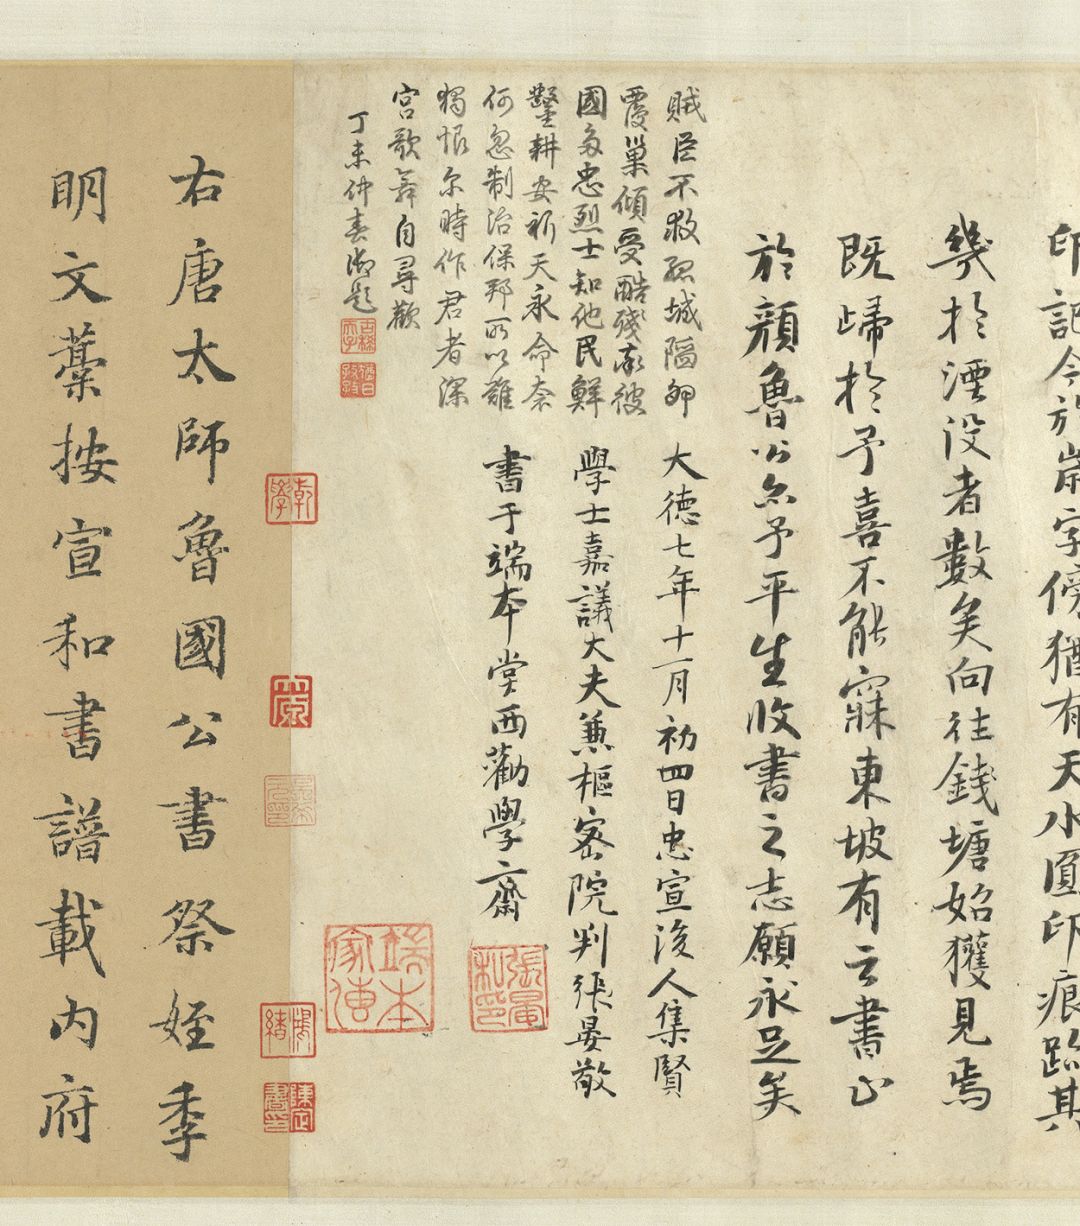 印記今於岸字傍猶有天水圓印痕跡其
幾於湮没者數矣向往錢塘始獲見焉
既歸於予喜不能寐東坡有云書止
於顔魯公亦予平生收書之志願永足矣
大德七年十一月初四日忠宣後人集賢
學士嘉議大夫兼樞密院判張晏敬
書于端本堂西勸學齋
張晏私印
端本家傳
賊臣不救孤城陷卵
覆巢傾受酷殘彼
國多忠烈士知他民鮮
鑿耕安祈天永命奈
何忽制治保邦所以難
獨恨尔時作君者深
宮歌舞自尋歡
丁未仲春御題
古稀天子
猶日孜孜
乾學
鴻緒
陳定書印
右唐太師魯國公書祭姪季
明文藁按宣和書譜載内府